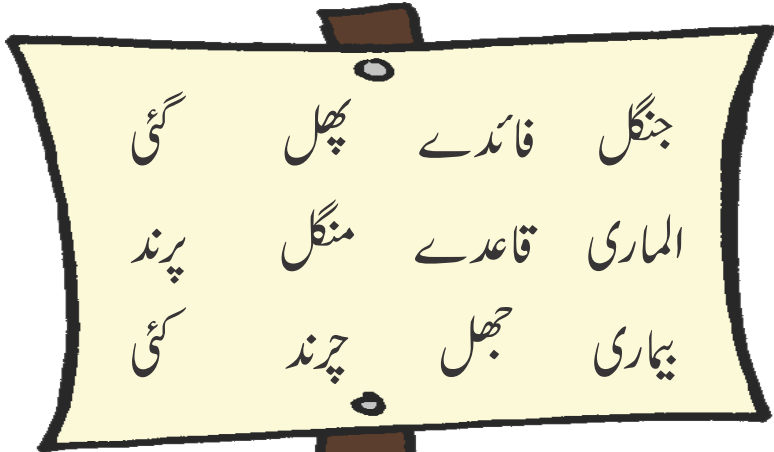 جنگل فائدے پھل گئی
الماری قاعدے منگل پرند
بیماری جھل چرند کئی